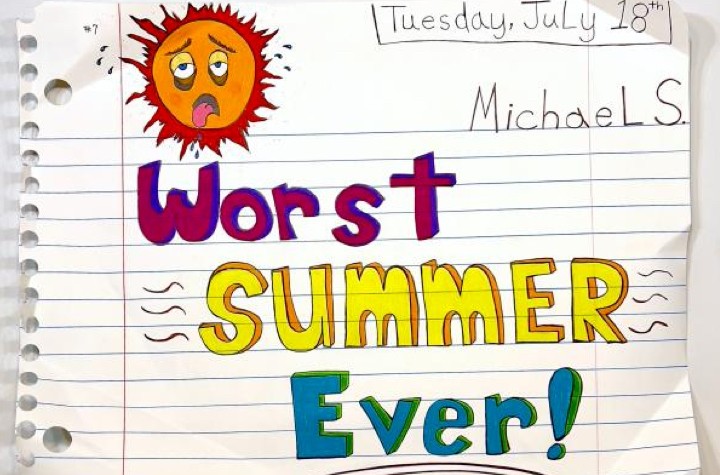 #7
Tuesday, July 18th
Michael S.
Worst
SUMMER
Ever!